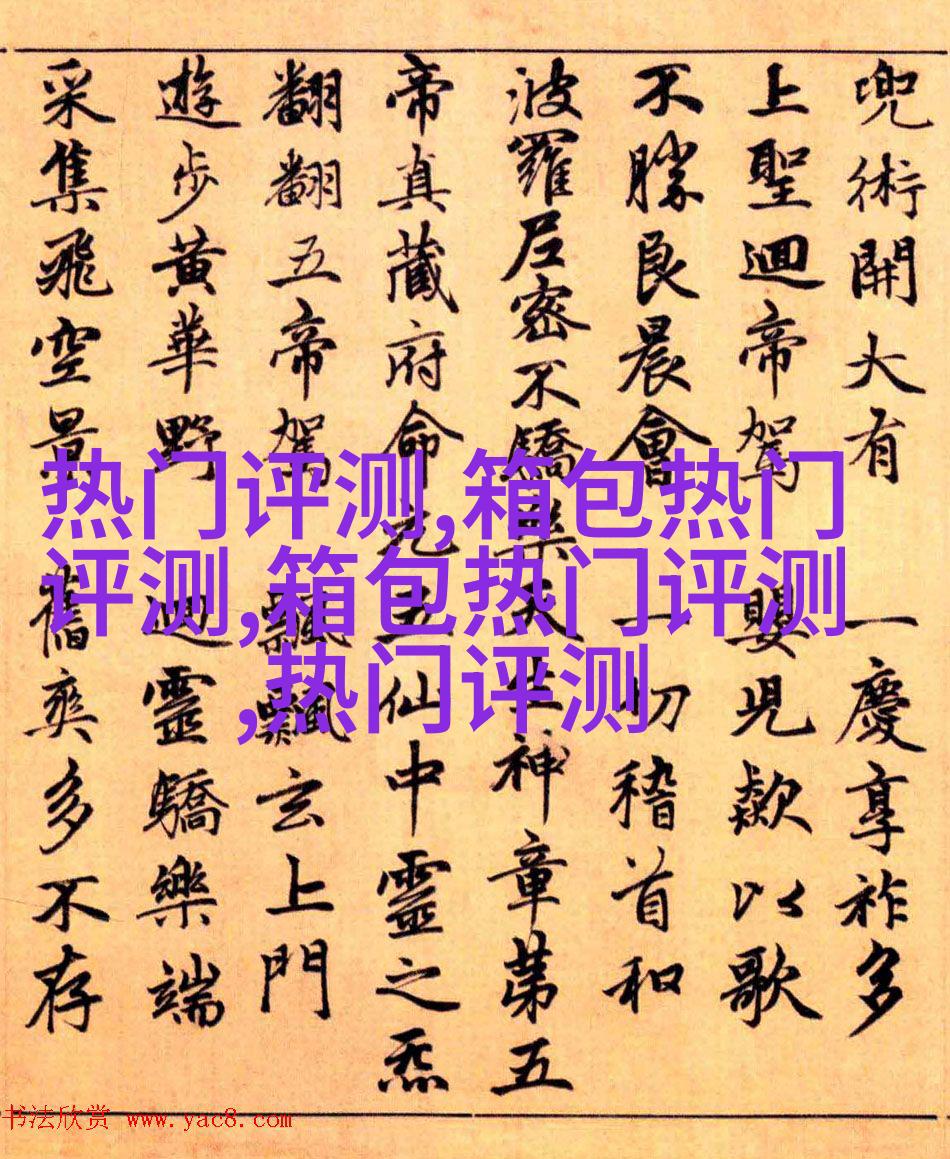 兜術開大有 一慶享祚多
上聖迴帝駕 嬰兒歎以歌
不勝良晨會 一切稽首和
波羅尼密不驕樂天生神章第五
帝真藏府命元五仙中靈之炁
翻翻五帝駕 飄飄玄上門
遊步黃華野 迴靈驕樂端
采集飛空景 舊爽多不存
热门评测,箱包热门
评测,箱包热门评测
,热门评测
书法欣赏 www.yac8.com